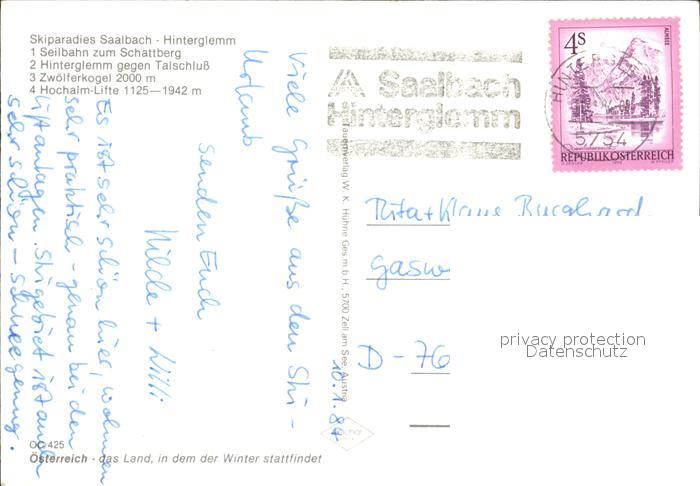 Skiparadies Saalbach - Hinterglemm
1 Seilbahn zum Schattberg
2 Hinterglemm gegen Talschluß
3 Zwölferkogel 2000 m
4 Hochalm-Lifte 1125—1942 m
Viele Grüße aus den Ski-
Urlaub
senden Euch
Hilde + Willi
Es ist sehr schön hier, wohnen
sehr praktisch - genau bei den
Liftanlagen. Skigebiet ist auch
sehr schön - Schnee genug.
10.1.84
OC 425
Österreich - das Land, in dem der Winter stattfindet
Tauernverlag W. K. Huhne Ges.m.b.H., 5700 Zell am See, Austria
Saalbach
Hinterglemm
4S
ALMSEE
REPUBLIK ÖSTERREICH
5754
Rita + Klaus Burghard
Gasw
D - 76
privacy protection
Datenschutz